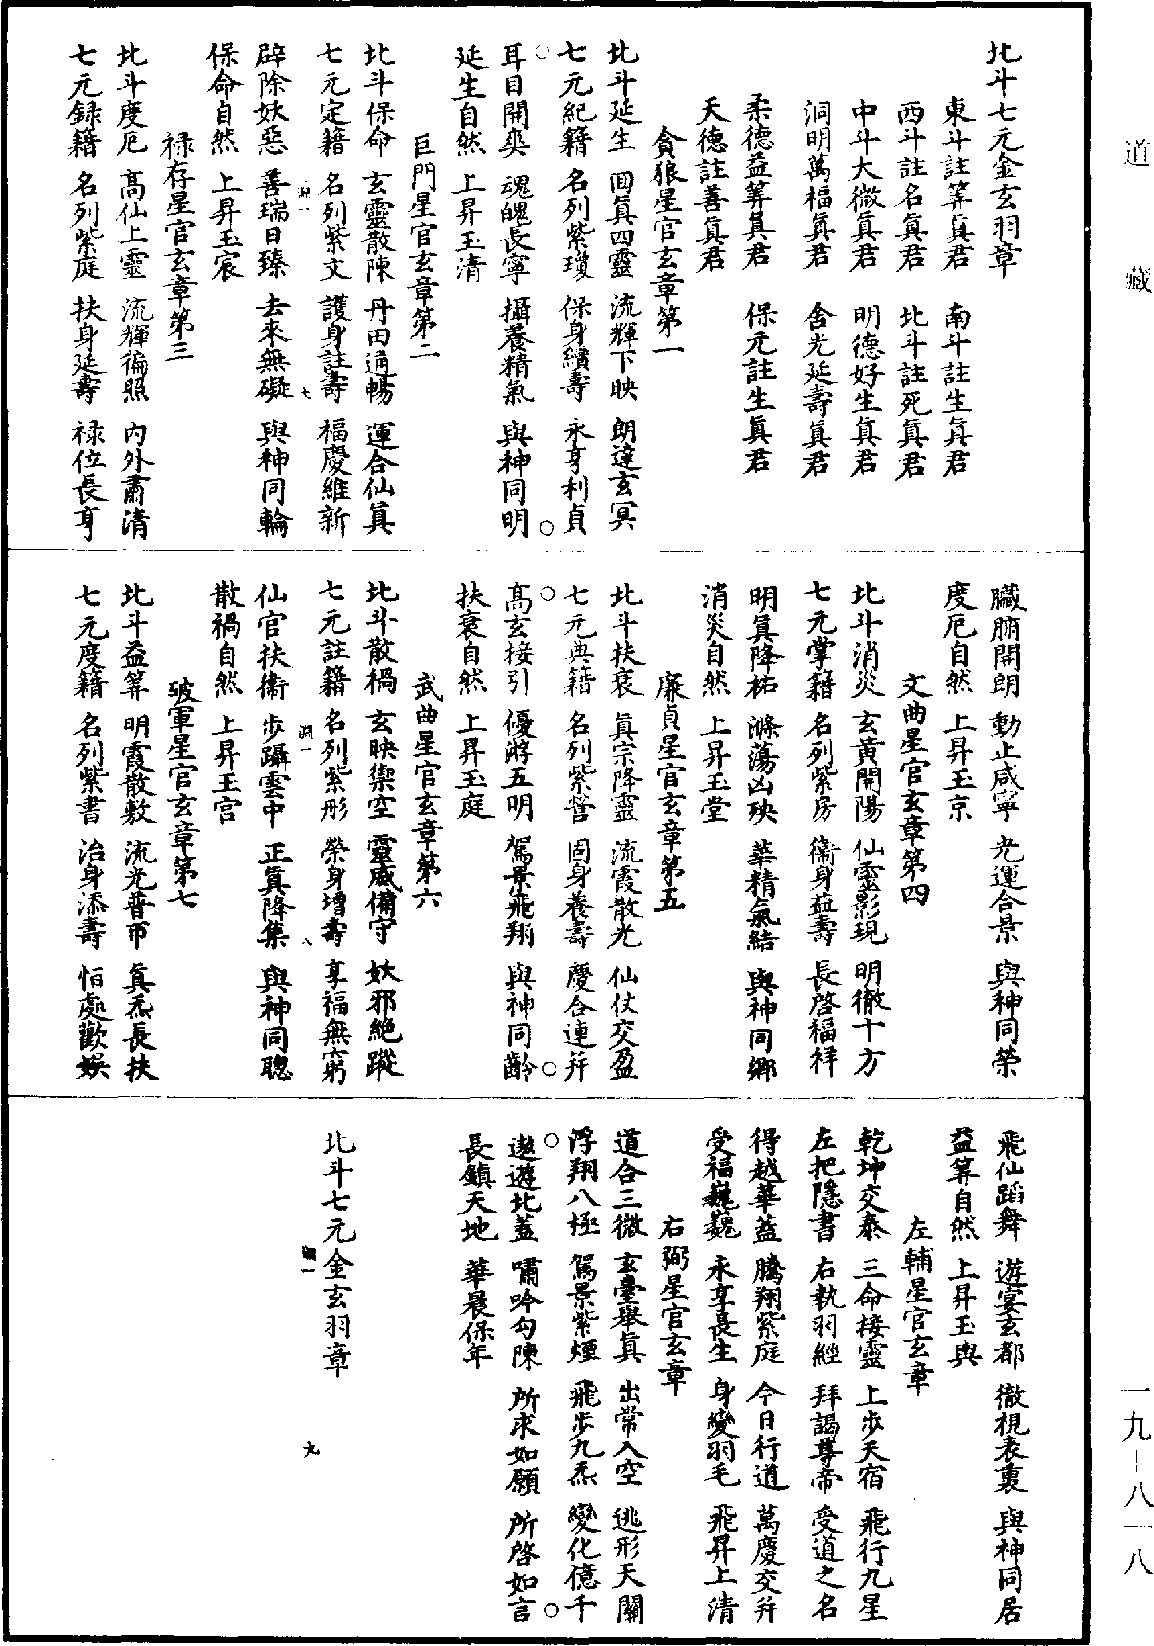 道藏
北斗七元金玄羽章
東斗註筭真君　南斗註生真君
西斗註名真君　北斗註死真君
中斗大微真君　明德好生真君
洞明萬福真君　含光延壽真君
柔德益筭真君　保元註生真君
天德註善真君
貪狼星官玄章第一
北斗延生　回真四靈　流輝下映　朗達玄冥
七元紀籍　名列紫瓊　保身續壽　永享利貞
耳目開爽　魂魄長寧　攝養精氣　與神同明
延生自然　上昇玉清
巨門星官玄章第二
北斗保命　玄靈散陳　丹田通暢　運合仙真
七元定籍　名列紫文　護身註壽　福慶維新
淵一　七
辟除妖惡　善瑞日臻　去來無礙　與神同輪
保命自然　上昇玉宸
祿存星官玄章第三
北斗度厄　高仙上靈　流輝徧照　內外肅清
七元録籍　名列紫庭　扶身延壽　祿位長亨
臟腑開朗　動止咸寧　光運合景　與神同榮
度厄自然　上昇玉京
文曲星官玄章第四
北斗消災　玄黃開陽　仙靈影現　明徹十方
七元掌籍　名列紫房　衛身益壽　長啓福祥
明真降祐　滌蕩凶殃　華精氣結　與神同鄉
消災自然　上昇玉堂
廉貞星官玄章第五
北斗扶衰　真宗降靈　流霞散光　仙仗交盈
七元典籍　名列紫營　固身養壽　慶合連并
高玄接引　優游五明　駕景飛翔　與神同齡
扶衰自然　上昇玉庭
武曲星官玄章第六
北斗散禍　玄映禦空　靈威備守　妖邪絕蹤
七元註籍　名列紫形　榮身增壽　享福無窮
淵一　八
仙官扶衛　步躡雲中　正真降集　與神同聰
散禍自然　上昇玉宮
破軍星官玄章第七
北斗益筭　明霞散敷　流光普帀　真炁長扶
七元度籍　名列紫書　治身添壽　怡處歡娛
飛仙蹈舞　遊宴玄都　徹視表裏　與神同居
益筭自然　上昇玉輿
左輔星官玄章
乾坤交泰　三命接靈　上步天宿　飛行九星
左把隱書　右執羽經　拜謁尊帝　受道之名
得越華蓋　騰翔紫庭　今日行道　萬慶交并
受福巍巍　永享長生　身變羽毛　飛昇上清
右弼星官玄章
道合三微　玄臺舉真　出常入空　逃形天關
浮翔八極　駕景紫煙　飛步九炁　變化億千
遨遊北蓋　嘯吟勾陳　所求如願　所啓如言
長鎮天地　華晨保年
北斗七元金玄羽章
淵一　九
一九－八一八